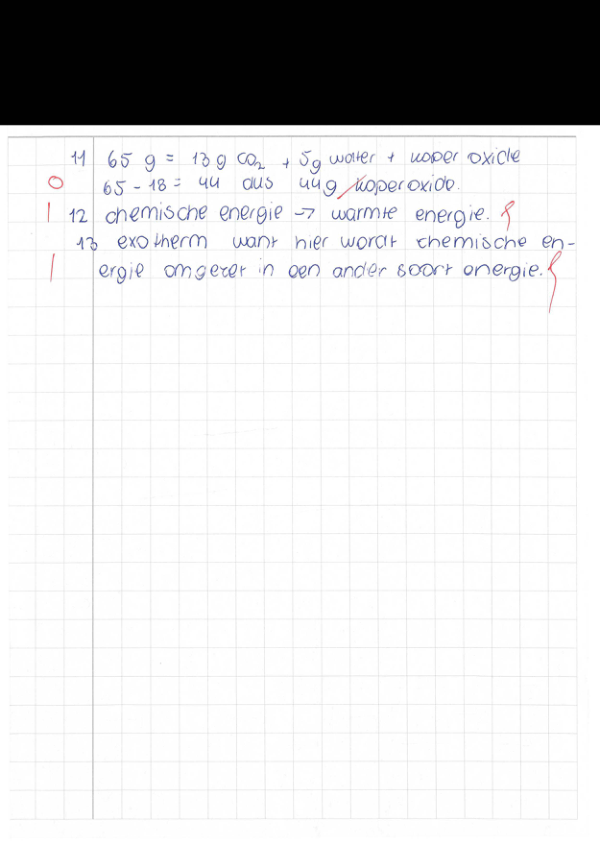 11 65 g = 13 g CO₂ + 5g water + koper oxide
0 65 - 18 = 44 dus 44g koperoxide.
1 12 chemische energie → warmte energie.
13 exotherm want hier wordt chemische en-
1 ergie omgezet in een ander soort energie.